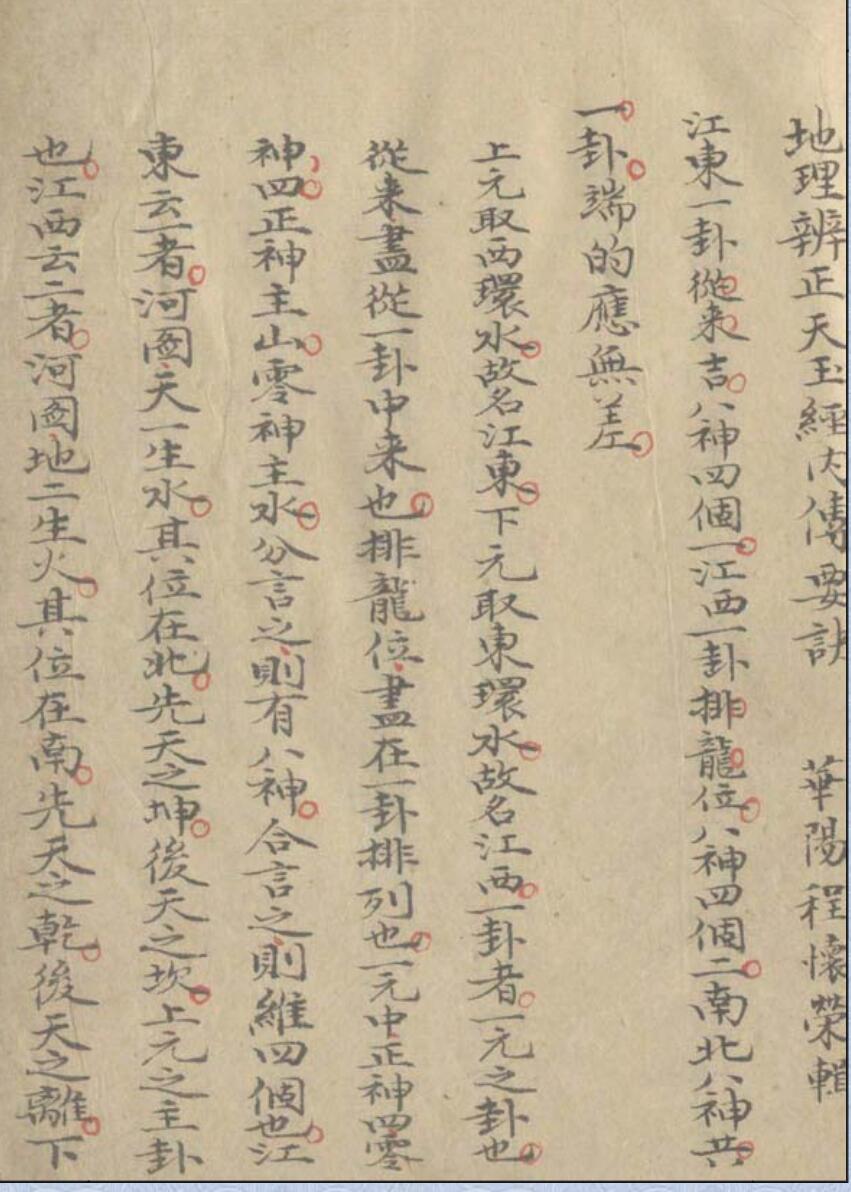 地理辨正天玉經內傳要訣　華陽程懷榮輯
江東一卦從來吉八神四個一江西一卦排龍位八神四個二南北八神共
一卦端的應無差
上元取西環水故名江東下元取東環水故名江西一卦者一元之卦也
從来盡從一卦中来也排龍位盡在一卦排列也一元中正神四零
神四正神主山零神主水分言之則有八神合言之則維四個也江
東云一者河圖天一生水其位在北先天之坤後天之坎上元之主卦
也江西云二者河圖地二生火其位在南先天之乾後天之離下